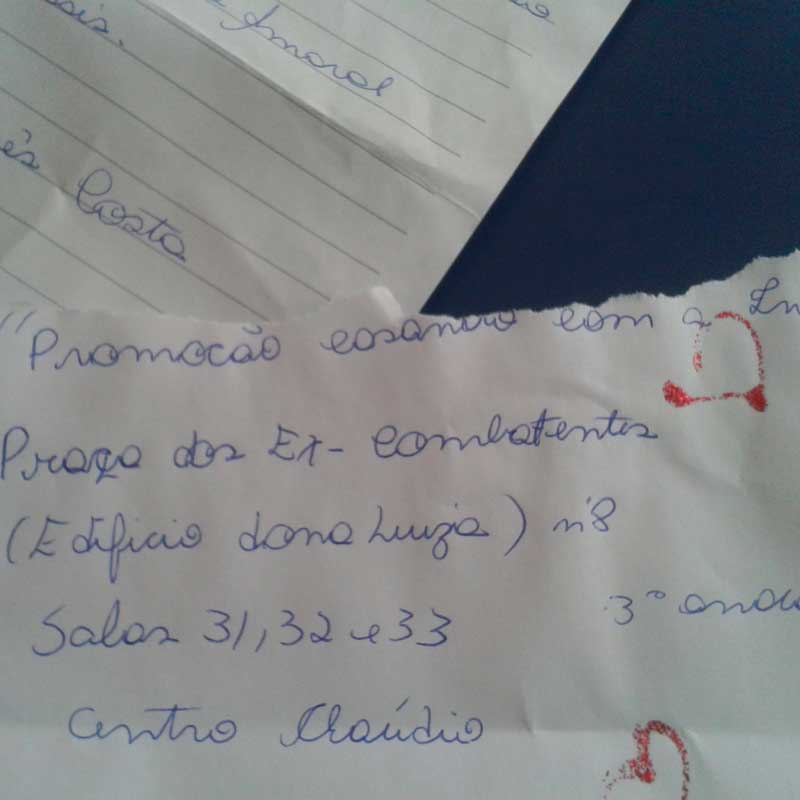 Amaral
ês Costa
"Promocão casando com a In
Praça dos Ex-combatentes
(Edificio dona Luzia) nº8
Salas 31, 32 e 33
3º anda
Centro Cláudio